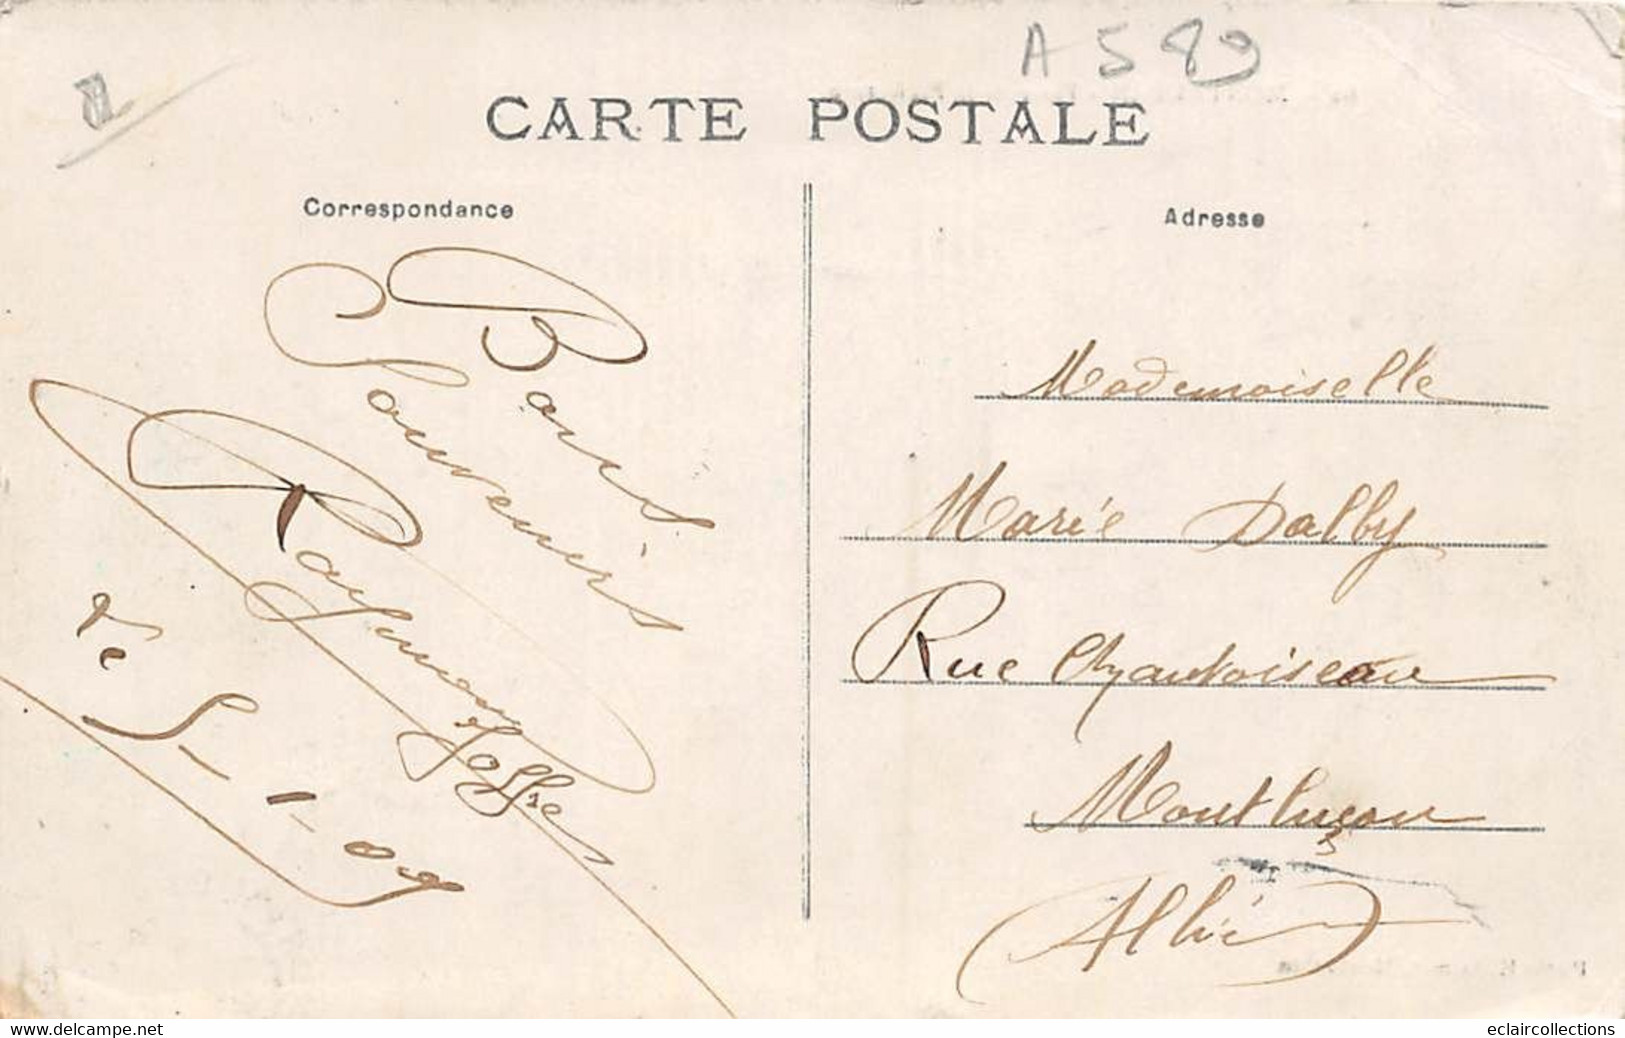 A 589
CARTE POSTALE
Correspondance
Adresse
Bons
Souvenirs
Le 5-1-09
Mademoiselle
Marie Dalby
Rue Chantoiseau
Montluçon
Allier
www.delcampe.net
eclaircollections